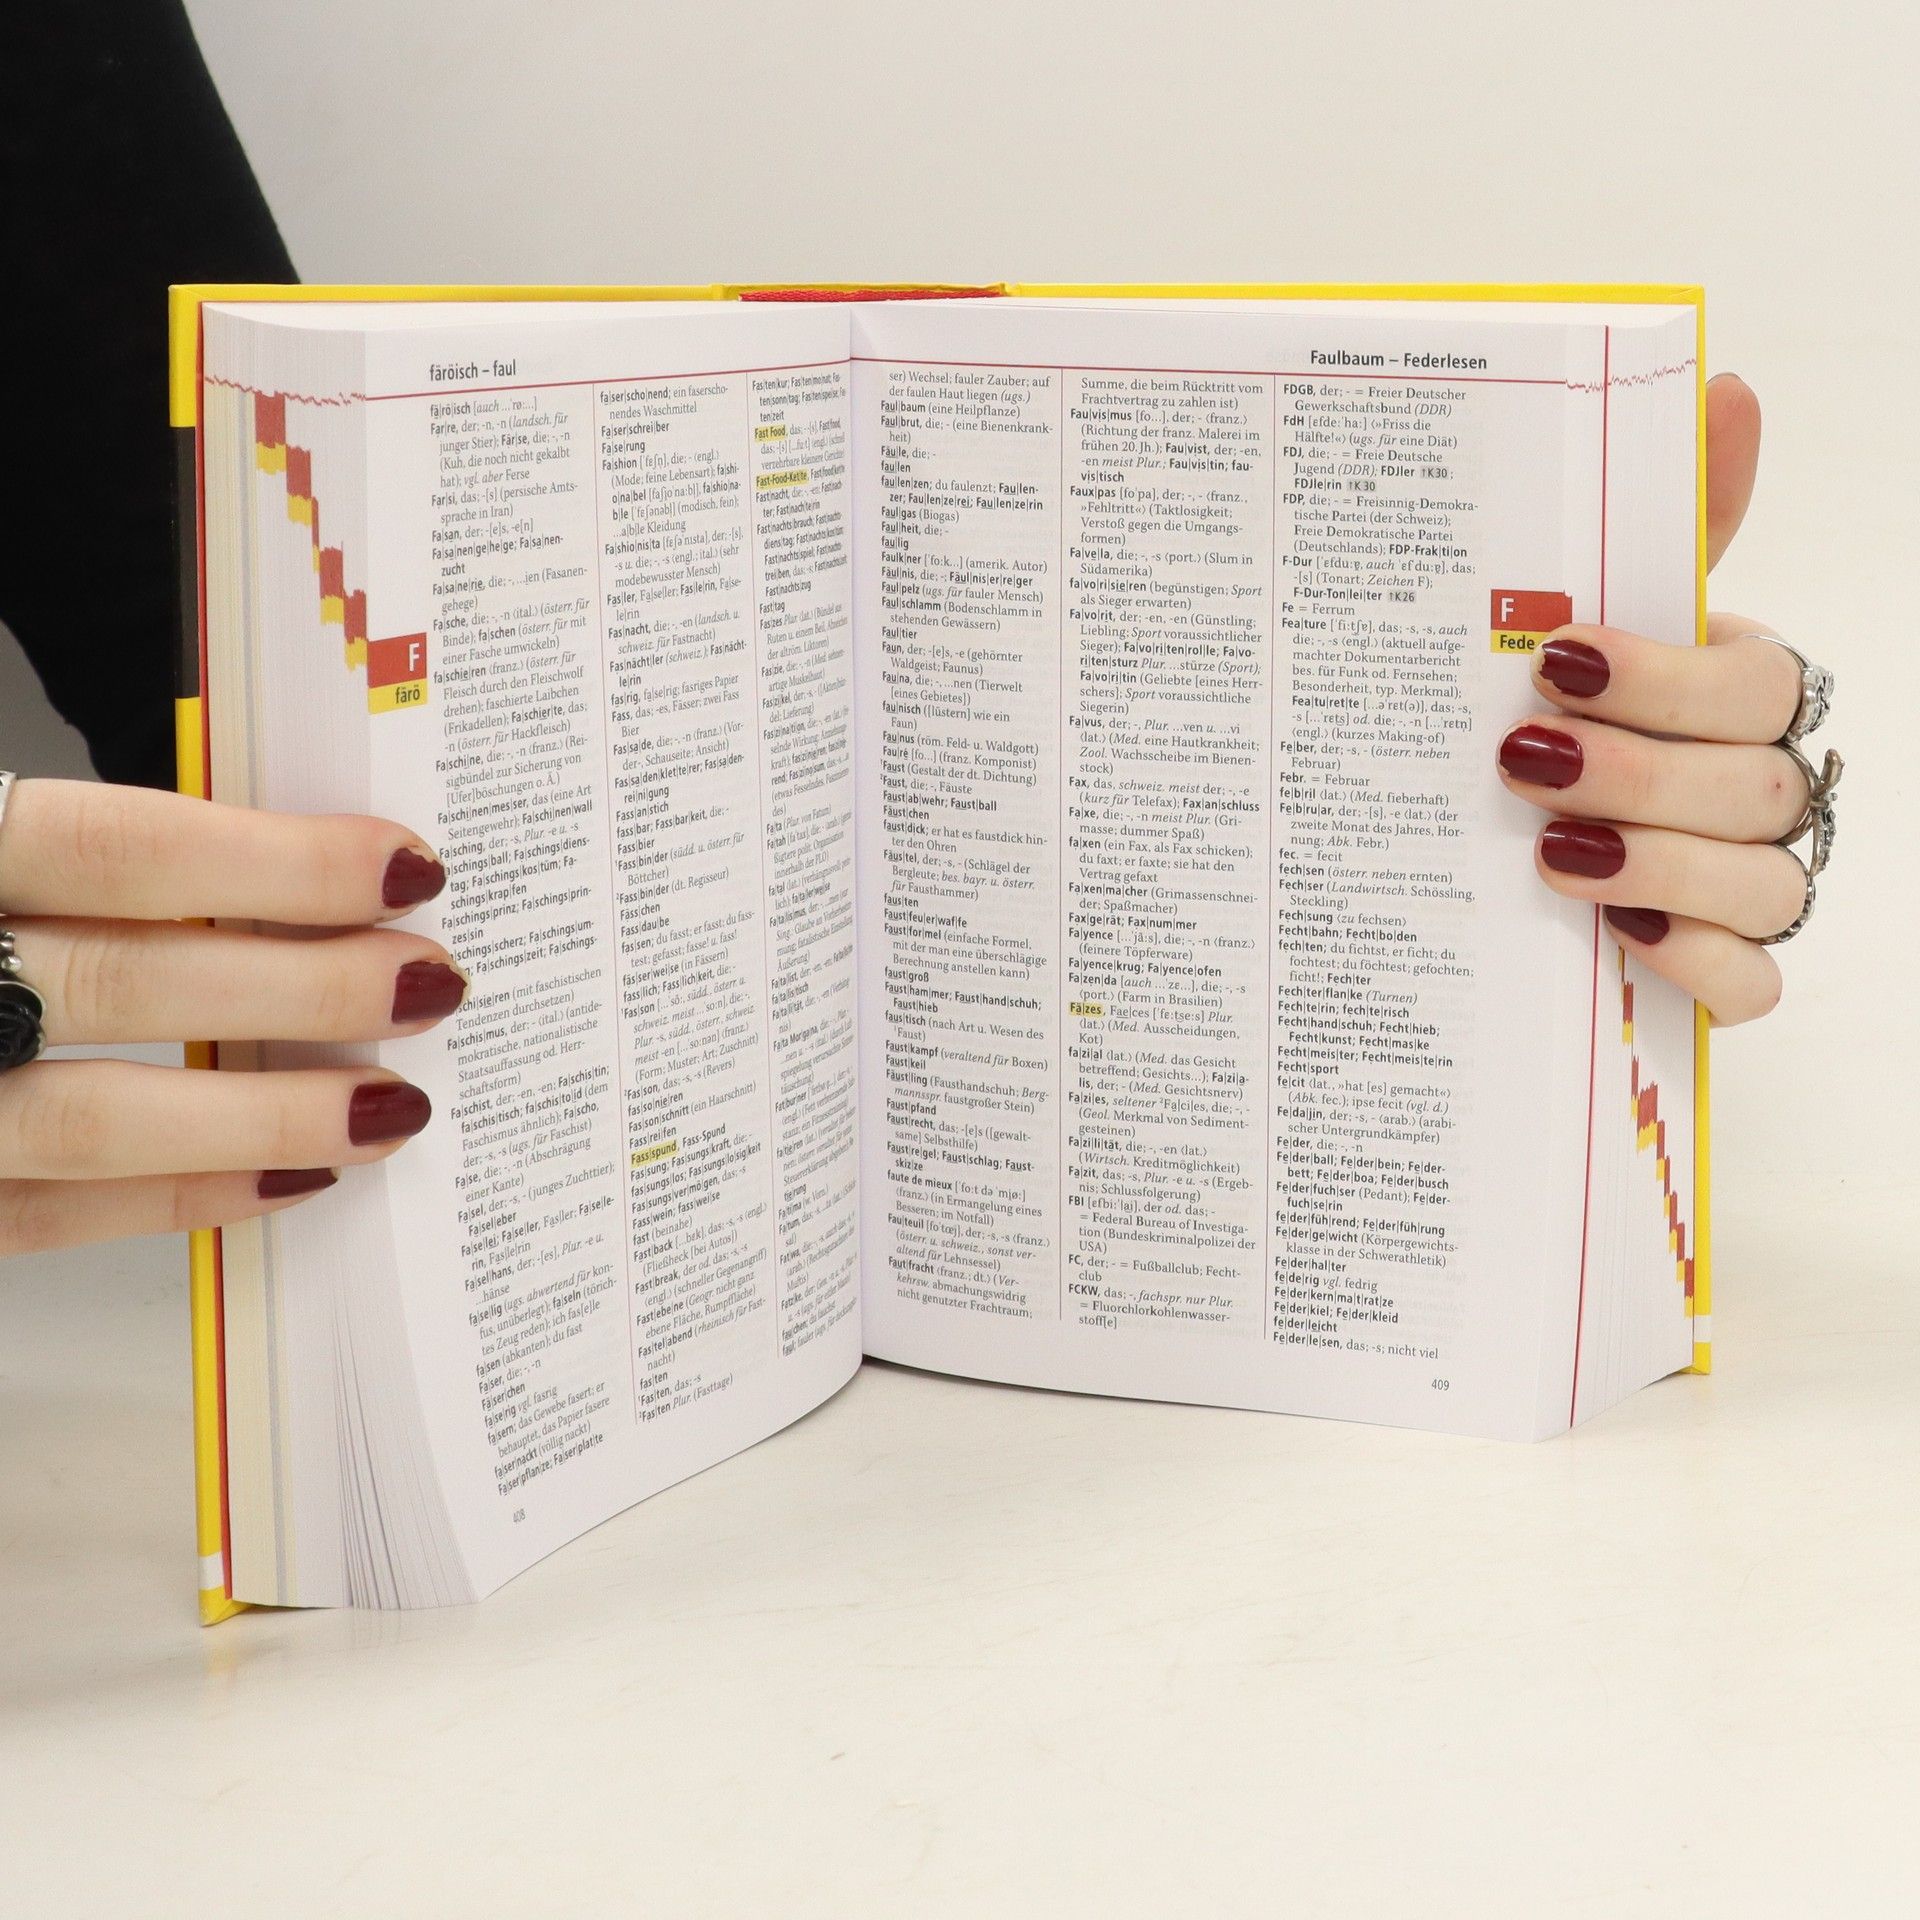 färöisch – faul
fä|rö|isch [auch ...ˈrøː...]
Far|re, der; -n, -n (landsch. für
junger Stier); Fär|se, die; -, -n
(Kuh, die noch nicht gekalbt
hat); vgl. aber Ferse
Far|si, das; -[s] (persische Amts-
sprache in Iran)
Fa|san, der; -[e]s, -e[n]
Fa|sa|nen|ge|he|ge; Fa|sa|nen-
zucht
Fa|sa|ne|rie, die; -, ...ien (Fasanen-
gehege)
Fa|sche, die; -, -n ⟨ital.⟩ (österr. für
Binde); fa|schen (österr. für mit
einer Fasche umwickeln)
fa|schie|ren ⟨franz.⟩ (österr. für
Fleisch durch den Fleischwolf
drehen); faschierte Laibchen
(Frikadellen); Fa|schier|te, das;
-n (österr. für Hackfleisch)
Fa|schi|ne, die; -, -n ⟨franz.⟩ (Rei-
sigbündel zur Sicherung von
[Ufer]böschungen o. Ä.)
Fa|schi|nen|mes|ser, das (eine Art
Seitengewehr); Fa|schi|nen|wall
Fa|sching, der; -s, Plur. -e u. -s
Fa|schings|ball; Fa|schings|diens-
tag; Fa|schings|kos|tüm; Fa-
schings|krap|fen
Fa|schings|prinz; Fa|schings|prin-
zes|sin
schings|scherz; Fa|schings|um-
Fa|schings|zeit; Fa|schings-
schi|sie|ren (mit faschistischen
Tendenzen durchsetzen)
Fa|schis|mus, der; - ⟨ital.⟩ (antide-
mokratische, nationalistische
Staatsauffassung od. Herr-
schaftsform)
Fa|schist, der; -en, -en; Fa|schis|tin;
fa|schis|tisch; fa|schis|to|id (dem
Faschismus ähnlich); Fa|scho,
der; -s, -s (ugs. für Faschist)
Fa|se, die; -, -n (Abschrägung
einer Kante)
Fa|sel, der; -s, - (junges Zuchttier);
Fa|sel|eber
Fa|se|lei; Fa|se|ler, Fas|ler; Fa|se|le-
rin, Fas|le|rin
Fa|sel|hans, der; -[es], Plur. -e u.
...hänse
fa|se|lig (ugs. abwertend für kon-
fus, unüberlegt); fa|seln (törich-
tes Zeug reden); ich fas[e]le
fa|sen (abkanten); du fast
Fa|ser, die; -, -n
Fä|ser|chen
fa|se|rig vgl. fasrig
fa|sern; das Gewebe fasert; er
behauptet, das Papier fasere
fa|ser|nackt (völlig nackt)
Fa|ser|pflan|ze; Fa|ser|plat|te
fa|ser|scho|nend; ein faserscho-
nendes Waschmittel
Fa|ser|schrei|ber
Fa|se|rung
Fa|shion [ˈfɛʃn̩], die; - ⟨engl.⟩
(Mode; feine Lebensart); fa|shi-
o|na|bel [faʃi̯oˈnaːbl̩], fa|shio|na-
b|le [ˈfɛʃənəbl̩] (modisch, fein);
...a|b|le Kleidung
Fa|shio|nis|ta [fɛʃəˈnɪsta], der; -[s],
-s u. die; -, -s ⟨engl.; ital.⟩ (sehr
modebewusster Mensch)
Fas|ler, Fa|se|ler; Fas|le|rin, Fa|se-
le|rin
Fas|nacht, die; -, -en (landsch. u.
schweiz. für Fastnacht)
Fas|nächt|ler (schweiz.); Fas|nächt-
le|rin
fas|rig, fa|se|rig; fasriges Papier
Fass, das; -es, Fässer; zwei Fass
Bier
Fas|sa|de, die; -, -n ⟨franz.⟩ (Vor-
der-, Schauseite; Ansicht)
Fas|sa|den|klet|te|rer; Fas|sa|den-
rei|ni|gung
Fass|an|stich
fass|bar; Fass|bar|keit, die; -
Fass|bier
¹Fass|bin|der (südd. u. österr. für
Böttcher)
²Fass|bin|der (dt. Regisseur)
Fäss|chen
Fass|dau|be
fas|sen; du fasst; er fasst; du fass-
test; gefasst; fasse! u. fass!
fäs|ser|wei|se (in Fässern)
fass|lich; Fass|lich|keit, die; -
¹Fas|son [...ˈsõː, südd., österr. u.
schweiz. meist ...ˈsoːn], die; -,
Plur. -s, südd., österr., schweiz.
meist -en [...ˈsoːnən] ⟨franz.⟩
(Form; Muster; Art; Zuschnitt)
²Fas|son, das; -s, -s (Revers)
fas|so|nie|ren
Fas|son|schnitt (ein Haarschnitt)
Fass|rei|fen
Fass|spund, Fass-Spund
Fas|sung; Fas|sungs|kraft, die; -
fas|sungs|los; Fas|sungs|lo|sig|keit
Fas|sungs|ver|mö|gen, das; -s
Fass|wein; fass|wei|se
fast (beinahe)
Fast|back [...bɛk], das; -s, -s ⟨engl.⟩
(Fließheck [bei Autos])
Fast|break, der od. das; -s, -s
⟨engl.⟩ (schneller Gegenangriff)
Fast|ebe|ne (Geogr. nicht ganz
ebene Fläche, Rumpffläche)
Fas|tel|abend (rheinisch für Fast-
nacht)
fas|ten
¹Fas|ten, das; -s
²Fas|ten Plur. (Fasttage)
Fas|ten|kur; Fas|ten|mo|nat; Fas-
ten|sonn|tag; Fas|ten|spei|se; Fas-
ten|zeit
Fast Food, das; - -[s], Fast|food,
das; -[s] [...fuːt] ⟨engl.⟩ (schnell
verzehrbare kleinere Gerichte)
Fast-Food-Ket|te, Fast|food|ket|te
Fast|nacht, die; -, -en; Fast|nach-
ter; Fast|nach|te|rin
Fast|nachts|brauch; Fast|nachts-
diens|tag; Fast|nachts|kos|tüm
Fast|nachts|spiel; Fast|nachts-
trei|ben, das; -s; Fast|nachts|zeit
Fast|nachts|zug
Fast|tag
Fas|zes Plur. ⟨lat.⟩ (Bündel aus
Ruten u. einem Beil, Abzeichen
der altröm. Liktoren)
Fas|zie, die; -, -n (Med. sehnen-
artige Muskelhaut)
Fas|zi|kel, der; -s, - ([Akten]bün-
del; Lieferung)
Fas|zi|na|ti|on, die; -, -en ⟨lat.⟩
selnde Wirkung; Anziehungs-
kraft); fas|zi|nie|ren; fas|zi|nie-
rend; Fas|zi|no|sum, das; -s
(etwas Fesselndes, Faszinieren-
des)
Fa|ta (Plur. von Fatum)
fa|tal ⟨lat.⟩ (verhängnisvoll;
lich); fa|ta|ler|wei|se
Fa|ta|lis|mus, der; -
Fa|ta|list, der; -en, -en
fa|ta|lis|tisch
Fa|ta|li|tät, die; -, -en
Fa|ta Mor|ga|na, die;
F
färö
408
Faulbaum – Federlesen
ser) Wechsel; fauler Zauber; auf
der faulen Haut liegen (ugs.)
Faul|baum (eine Heilpflanze)
Faul|brut, die; - (eine Bienenkrank-
heit)
Fäu|le, die; -
fau|len
fau|len|zen; du faulenzt; Fau|len-
zer; Fau|len|ze|rei; Fau|len|ze|rin
Faul|gas (Biogas)
Faul|heit, die; -
fau|lig
Faulk|ner [ˈfoːk...] (amerik. Autor)
Fäul|nis, die; -; Fäul|nis|er|re|ger
Faul|pelz (ugs. für fauler Mensch)
Faul|schlamm (Bodenschlamm in
stehenden Gewässern)
Faul|tier
Faun, der; -[e]s, -e (gehörnter
Waldgeist; Faunus)
Fau|na, die; -, ...nen (Tierwelt
[eines Gebietes])
fau|nisch ([lüstern] wie ein
Faun)
Fau|nus (röm. Feld- u. Waldgott)
Fau|ré [fo...] (franz. Komponist)
¹Faust (Gestalt der dt. Dichtung)
²Faust, die; -, Fäuste
Faust|ab|wehr; Faust|ball
Fäust|chen
faust|dick; er hat es faustdick hin-
ter den Ohren
Fäus|tel, der; -s, - (Schlägel der
Bergleute; bes. bayr. u. österr.
für Fausthammer)
faus|ten
Faust|feu|er|waf|fe
Faust|for|mel (einfache Formel,
mit der man eine überschlägige
Berechnung anstellen kann)
faust|groß
Faust|ham|mer; Faust|hand|schuh;
Faust|hieb
faus|tisch (nach Art u. Wesen des
¹Faust)
Faust|kampf (veraltend für Boxen)
Faust|keil
Fäust|ling (Fausthandschuh; Berg-
mannsspr. faustgroßer Stein)
Faust|pfand
Faust|recht, das; -[e]s ([gewalt-
same] Selbsthilfe)
Faust|re|gel; Faust|schlag; Faust-
skiz|ze
faute de mieux [ˈfoːt də ˈmi̯øː]
⟨franz.⟩ (in Ermangelung eines
Besseren; im Notfall)
Fau|teuil [foˈtœj], der; -s, -s ⟨franz.⟩
(österr. u. schweiz., sonst ver-
altend für Lehnsessel)
Faut|fracht ⟨franz.; dt.⟩ (Ver-
kehrsw. abmachungswidrig
nicht genutzter Frachtraum;
Summe, die beim Rücktritt vom
Frachtvertrag zu zahlen ist)
Fau|vis|mus [fo...], der; - ⟨franz.⟩
(Richtung der franz. Malerei im
frühen 20. Jh.); Fau|vist, der; -en,
-en meist Plur.; Fau|vis|tin; fau-
vis|tisch
Faux|pas [foˈpa], der; -, - ⟨franz.,
»Fehltritt«⟩ (Taktlosigkeit;
Verstoß gegen die Umgangs-
formen)
Fa|ve|la, die; -, -s ⟨port.⟩ (Slum in
Südamerika)
fa|vo|ri|sie|ren (begünstigen; Sport
als Sieger erwarten)
Fa|vo|rit, der; -en, -en (Günstling;
Liebling; Sport voraussichtlicher
Sieger); Fa|vo|ri|ten|rol|le; Fa|vo-
ri|ten|sturz Plur. ...stürze (Sport);
Fa|vo|ri|tin (Geliebte [eines Herr-
schers]; Sport voraussichtliche
Siegerin)
Fa|vus, der; -, Plur. ...ven u. ...vi
⟨lat.⟩ (Med. eine Hautkrankheit;
Zool. Wachsscheibe im Bienen-
stock)
Fax, das, schweiz. meist der; -, -e
(kurz für Telefax); Fax|an|schluss
Fa|xe, die; -, -n meist Plur. (Gri-
masse; dummer Spaß)
fa|xen (ein Fax, als Fax schicken);
du faxt; er faxte; sie hat den
Vertrag gefaxt
Fa|xen|ma|cher (Grimassenschnei-
der; Spaßmacher)
Fax|ge|rät; Fax|num|mer
Fa|yence [...ˈjãːs], die; -, -n ⟨franz.⟩
(feinere Töpferware)
Fa|yence|krug; Fa|yence|ofen
Fa|zen|da [auch ...ˈzɛ...], die; -, -s
⟨port.⟩ (Farm in Brasilien)
Fä|zes, Fae|ces [ˈfɛːtseːs] Plur.
⟨lat.⟩ (Med. Ausscheidungen,
Kot)
fa|zi|al ⟨lat.⟩ (Med. das Gesicht
betreffend; Gesichts...); Fa|zi|a-
lis, der; - (Med. Gesichtsnerv)
Fa|zi|es, seltener ²Fa|ci|es, die; -, -
(Geol. Merkmal von Sediment-
gesteinen)
Fa|zi|li|tät, die; -, -en ⟨lat.⟩
(Wirtsch. Kreditmöglichkeit)
Fa|zit, das; -s, Plur. -e u. -s (Ergeb-
nis; Schlussfolgerung)
FBI [ɛfbiːˈlai̯], der od. das; -
= Federal Bureau of Investiga-
tion (Bundeskriminalpolizei der
USA)
FC, der; - = Fußballclub; Fecht-
club
FCKW, das; -, fachspr. nur Plur.
= Fluorchlorkohlenwasser-
stoff[e]
FDGB, der; - = Freier Deutscher
Gewerkschaftsbund (DDR)
FdH [ɛfdeːˈhaː] ⟨»Friss die
Hälfte!«⟩ (ugs. für eine Diät)
FDJ, die; - = Freie Deutsche
Jugend (DDR); FDJler ↑K 30 ;
FDJle|rin ↑K 30
FDP, die; - = Freisinnig-Demokra-
tische Partei (der Schweiz);
Freie Demokratische Partei
(Deutschlands); FDP-Frak|ti|on
F-Dur [ˈɛfduːɐ̯, auch ˈɛfˈduːɐ̯], das;
-[s] (Tonart; Zeichen F);
F-Dur-Ton|lei|ter ↑K 26
Fe = Ferrum
Fea|ture [ˈfiːtʃɐ], das; -s, -s, auch
die; -, -s ⟨engl.⟩ (aktuell aufge-
machter Dokumentarbericht
bes. für Funk od. Fernsehen;
Besonderheit, typ. Merkmal);
Fea|tu|ret|te [...əˈrɛt(ə)], das; -s,
-s [...ˈrɛts] od. die; -, -n [...ˈrɛtn̩]
⟨engl.⟩ (kurzes Making-of)
Fe|ber, der; -s, - (österr. neben
Februar)
Febr. = Februar
fe|b|ril ⟨lat.⟩ (Med. fieberhaft)
Fe|b|ru|ar, der; -[s], -e ⟨lat.⟩ (der
zweite Monat des Jahres, Hor-
nung; Abk. Febr.)
fec. = fecit
fech|sen (österr. neben ernten)
Fech|ser (Landwirtsch. Schössling,
Steckling)
Fech|sung ⟨zu fechsen⟩
Fecht|bahn; Fecht|bo|den
fech|ten; du fichtst, er ficht; du
fochtest; du föchtest; gefochten;
ficht!; Fech|ter
Fech|ter|flan|ke (Turnen)
Fech|te|rin; fech|te|risch
Fecht|hand|schuh; Fecht|hieb;
Fecht|kunst; Fecht|mas|ke
Fecht|meis|ter; Fecht|meis|te|rin
Fecht|sport
fe|cit ⟨lat., »hat [es] gemacht«⟩
(Abk. fec.); ipse fecit (vgl. d.)
Fe|da|jin, der; -s, - ⟨arab.⟩ (arabi-
scher Untergrundkämpfer)
Fe|der, die; -, -n
Fe|der|ball; Fe|der|bein; Fe|der-
bett; Fe|der|boa; Fe|der|busch
Fe|der|fuch|ser (Pedant); Fe|der-
fuch|se|rin
fe|der|füh|rend; Fe|der|füh|rung
Fe|der|ge|wicht (Körpergewichts-
klasse in der Schwerathletik)
Fe|der|hal|ter
fe|de|rig vgl. fedrig
Fe|der|kern|ma|t|rat|ze
Fe|der|kiel; Fe|der|kleid
fe|der|leicht
Fe|der|le|sen, das; -s; nicht viel
F
Fede
409